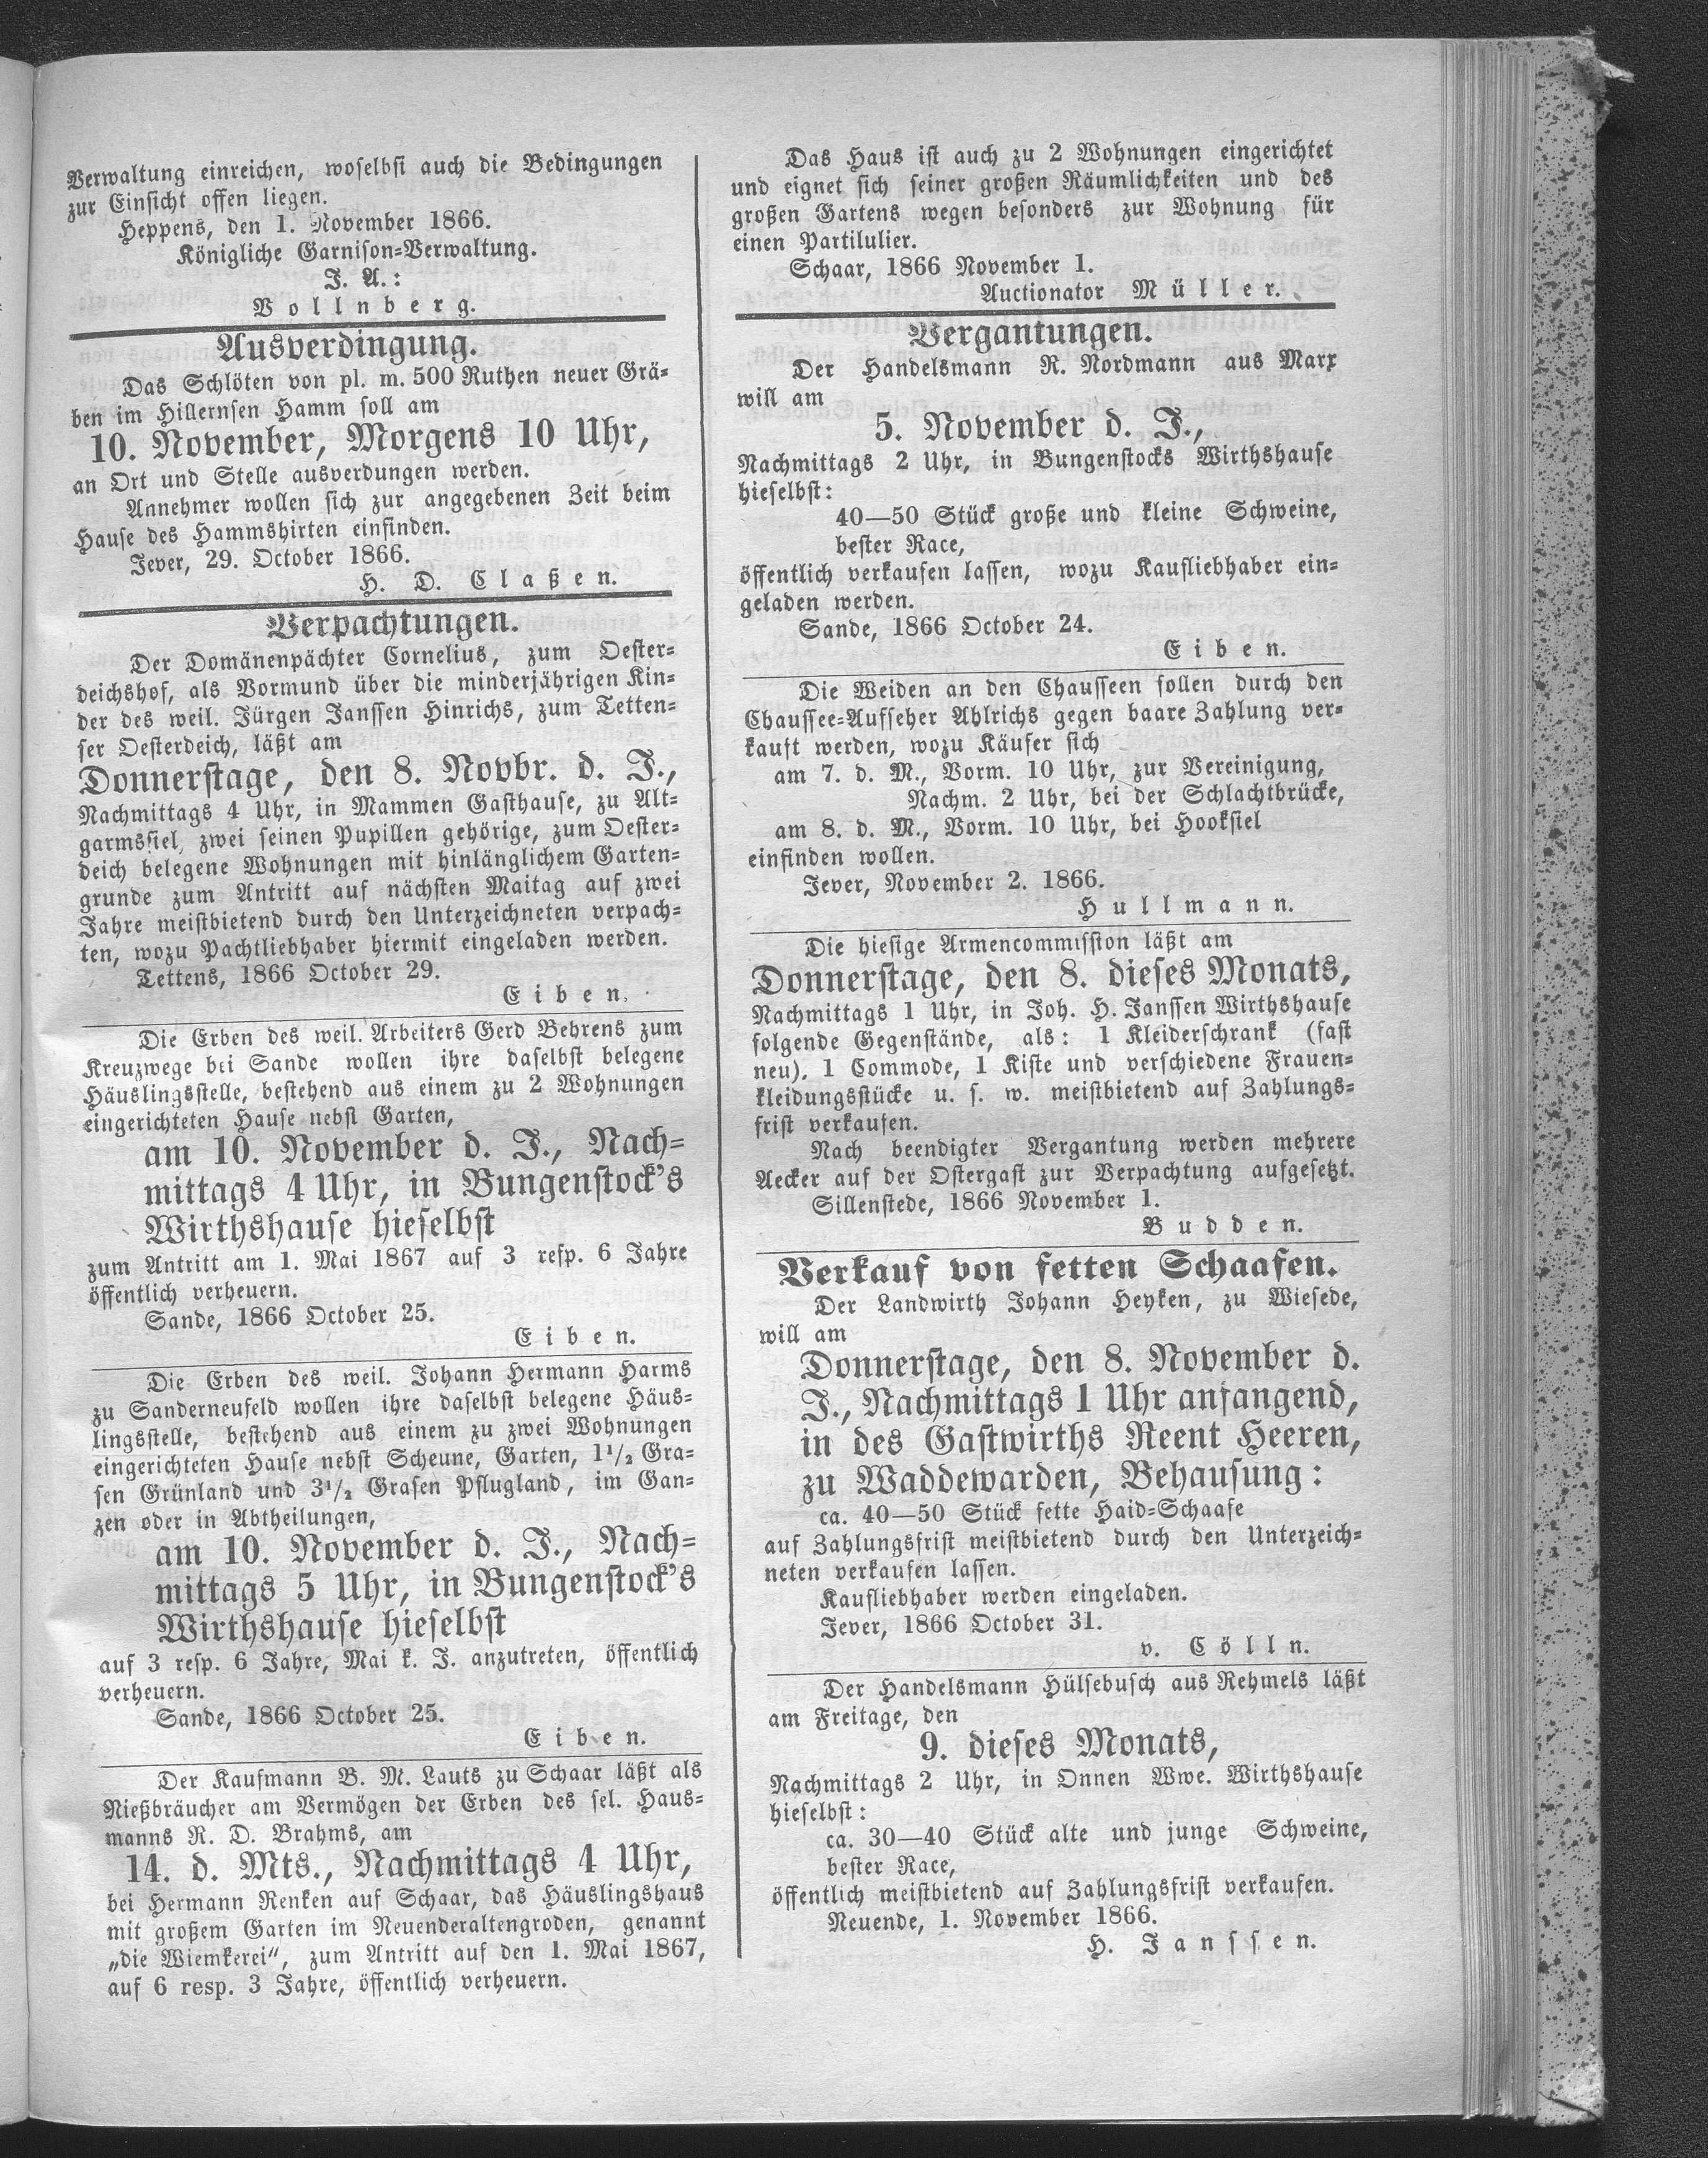 Verwaltung einreichen, woselbst auch die Bedingungen
zur Einsicht offen liegen.
Heppens, den 1. November 1866.
Königliche Garnison-Verwaltung.
J. A.:
Vollnberg.
Ausverdingung.
Das Schlöten von pl. m. 500 Ruthen neuer Grä-
ben im Hillernsen Hamm soll am
10. November, Morgens 10 Uhr,
an Ort und Stelle ausverdungen werden.
Annehmer wollen sich zur angegebenen Zeit beim
Hause des Hammshirten einfinden.
Jever, 29. October 1866.
H. D. Claßen.
Verpachtungen.
Der Domänenpächter Cornelius, zum Oester-
deichshof, als Vormund über die minderjährigen Kin-
der des weil. Jürgen Janssen Hinrichs, zum Tetten-
ser Oesterdeich, läßt am
Donnerstage, den 8. Novbr. d. J.,
Nachmittags 4 Uhr, in Mammen Gasthause, zu Alt-
garmssiel, zwei seinen Pupillen gehörige, zum Oester-
deich belegene Wohnungen mit hinlänglichem Garten-
grunde zum Antritt auf nächsten Maitag auf zwei
Jahre meistbietend durch den Unterzeichneten verpach-
ten, wozu Pachtliebhaber hiermit eingeladen werden.
Tettens, 1866 October 29.
Eiben.
Die Erben des weil. Arbeiters Gerd Behrens zum
Kreuzwege bei Sande wollen ihre daselbst belegene
Häuslingsstelle, bestehend aus einem zu 2 Wohnungen
eingerichteten Hause nebst Garten,
am 10. November d. J., Nach-
mittags 4 Uhr, in Bungenstock's
Wirthshause hieselbst
zum Antritt am 1. Mai 1867 auf 3 resp. 6 Jahre
öffentlich verheuern.
Sande, 1866 October 25.
Eiben.
Die Erben des weil. Johann Hermann Harms
zu Sanderneufeld wollen ihre daselbst belegene Häus-
lingsstelle, bestehend aus einem zu zwei Wohnungen
eingerichteten Hause nebst Scheune, Garten, 1 1/2 Gra-
sen Grünland und 3 1/2 Grasen Pflugland, im Gan-
zen oder in Abtheilungen,
am 10. November d. J., Nach-
mittags 5 Uhr, in Bungenstock's
Wirthshause hieselbst
auf 3 resp. 6 Jahre, Mai k. J. anzutreten, öffentlich
verheuern.
Sande, 1866 October 25.
Eiben.
Der Kaufmann B. M. Lauts zu Schaar läßt als
Nießbräucher am Vermögen der Erben des sel. Haus-
manns R. D. Brahms, am
14. d. Mts., Nachmittags 4 Uhr,
bei Hermann Renken auf Schaar, das Häuslingshaus
mit großem Garten im Neuenderaltengroden, genannt
„die Wiemkerei“, zum Antritt auf den 1. Mai 1867,
auf 6 resp. 3 Jahre, öffentlich verheuern.
Das Haus ist auch zu 2 Wohnungen eingerichtet
und eignet sich seiner großen Räumlichkeiten und des
großen Gartens wegen besonders zur Wohnung für
einen Partilulier.
Schaar, 1866 November 1.
Auctionator Müller.
Vergantungen.
Der Handelsmann R. Nordmann aus Marx
will am
5. November d. J.,
Nachmittags 2 Uhr, in Bungenstocks Wirthshause
hieselbst:
40—50 Stück große und kleine Schweine,
bester Race,
öffentlich verkaufen lassen, wozu Kaufliebhaber ein-
geladen werden.
Sande, 1866 October 24.
Eiben.
Die Weiden an den Chausseen sollen durch den
Chaussee-Aufseher Ahlrichs gegen baare Zahlung ver-
kauft werden, wozu Käufer sich
am 7. d. M., Vorm. 10 Uhr, zur Vereinigung,
Nachm. 2 Uhr, bei der Schlachtbrücke,
am 8. d. M., Vorm. 10 Uhr, bei Hooksiel
einfinden wollen.
Jever, November 2. 1866.
Hullmann.
Die hiesige Armencommission läßt am
Donnerstage, den 8. dieses Monats,
Nachmittags 1 Uhr, in Joh. H. Janssen Wirthshause
folgende Gegenstände, als: 1 Kleiderschrank (fast
neu), 1 Commode, 1 Kiste und verschiedene Frauen-
kleidungsstücke u. s. w. meistbietend auf Zahlungs-
frist verkaufen.
Nach beendigter Vergantung werden mehrere
Aecker auf der Ostergast zur Verpachtung aufgesetzt.
Sillenstede, 1866 November 1.
Budden.
Verkauf von fetten Schaafen.
Der Landwirth Johann Heyken, zu Wiesede,
will am
Donnerstage, den 8. November d.
J., Nachmittags 1 Uhr anfangend,
in des Gastwirths Reent Heeren,
zu Waddewarden, Behausung:
ca. 40—50 Stück fette Haid-Schaafe
auf Zahlungsfrist meistbietend durch den Unterzeich-
neten verkaufen lassen.
Kaufliebhaber werden eingeladen.
Jever, 1866 October 31.
v. Cölln.
Der Handelsmann Hülsebusch aus Rehmels läßt
am Freitage, den
9. dieses Monats,
Nachmittags 2 Uhr, in Onnen Wwe. Wirthshause
hieselbst:
ca. 30—40 Stück alte und junge Schweine,
bester Race,
öffentlich meistbietend auf Zahlungsfrist verkaufen.
Neuende, 1. November 1866.
H. Janssen.